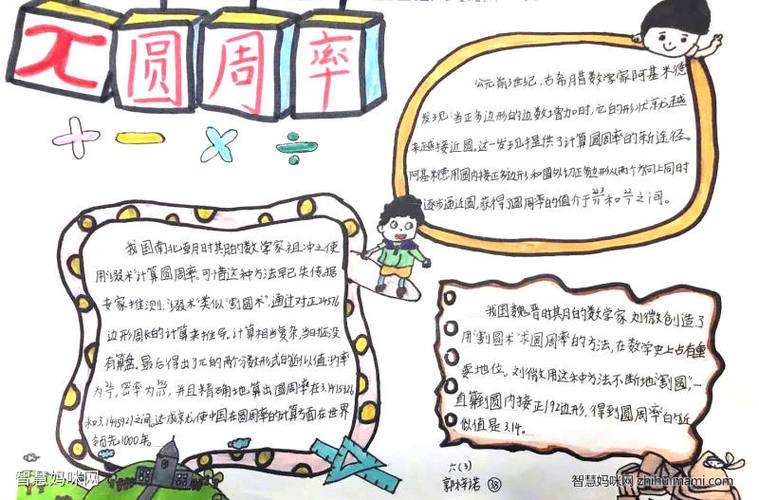 π圆周率
+ - × ÷
公元前3世纪,古希腊数学家阿基米德
发现:当正多边形的边数增加时,它的形状就越
来越接近圆。这一发现提供了计算圆周率的新途径。
阿基米德用圆内接正多边形和圆外切正多边形从两个方向上同时
逐步逼近圆,获得了圆周率的值介于 和 之间。
我国南北朝时期的数学家祖冲之使
用"缀术"计算圆周率。可惜这种方法早已失传。据
专家推测,"缀术"类似"割圆术",通过对正24576
边形周长的计算来推导。计算相当复杂,当时还没
有算盘。最后得出了π的两个分数形式的近似值:约率
为 ,密率为 ,并且精确地算出圆周率在3.1415926
和3.1415927之间。这成就,使中国在圆周率的计算方面在世界
领先1000年。
我国魏晋时期的数学家刘徽创造了
用"割圆术"求圆周率的方法,在数学史上占有重
要地位。刘徽用这种方法不断地"割圆",一
直算到圆内接正192边形,得到圆周率的近
似值是3.14。
六(3)
㊳
智慧妈咪网
智慧妈咪网 zhihuimami.com